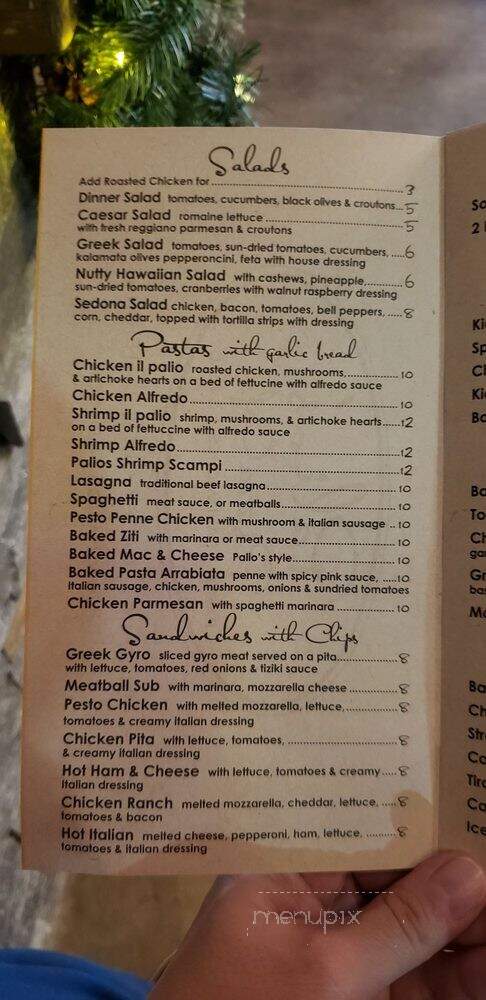 Salads
Add Roasted Chicken for ........ 3
Dinner Salad tomatoes, cucumbers, black olives & croutons... 5
Caesar Salad romaine lettuce ........ 5
with fresh reggiano parmesan & croutons
Greek Salad tomatoes, sun-dried tomatoes, cucumbers, ..... 6
kalamata olives pepperoncini, feta with house dressing
Nutty Hawaiian Salad with cashews, pineapple, ........ 6
sun-dried tomatoes, cranberries with walnut raspberry dressing
Sedona Salad chicken, bacon, tomatoes, bell peppers, ..... 8
corn, cheddar, topped with tortilla strips with dressing
Pastas with garlic bread
Chicken il palio roasted chicken, mushrooms, ........ 10
& artichoke hearts on a bed of fettucine with alfredo sauce
Chicken Alfredo ........ 10
Shrimp il palio shrimp, mushrooms, & artichoke hearts...... 12
on a bed of fettuccine with alfredo sauce
Shrimp Alfredo ........ 12
Palios Shrimp Scampi ........ 12
Lasagna traditional beef lasagna ........ 10
Spaghetti meat sauce, or meatballs ........ 10
Pesto Penne Chicken with mushroom & italian sausage .. 10
Baked Ziti with marinara or meat sauce ........ 10
Baked Mac & Cheese Palio's style ........ 10
Baked Pasta Arrabiata penne with spicy pink sauce, ..... 10
italian sausage, chicken, mushrooms, onions & sundried tomatoes
Chicken Parmesan with spaghetti marinara ........ 10
Sandwiches with Chips
Greek Gyro sliced gyro meat served on a pita ........ 8
with lettuce, tomatoes, red onions & tiziki sauce
Meatball Sub with marinara, mozzarella cheese ........ 8
Pesto Chicken with melted mozzarella, lettuce, ........ 8
tomatoes & creamy italian dressing
Chicken Pita with lettuce, tomatoes, ........ 8
& creamy italian dressing
Hot Ham & Cheese with lettuce, tomatoes & creamy .... 8
italian dressing
Chicken Ranch melted mozzarella, cheddar, lettuce, ..... 8
tomatoes & bacon
Hot Italian melted cheese, pepperoni, ham, lettuce, ........ 8
tomatoes & italian dressing
menupix